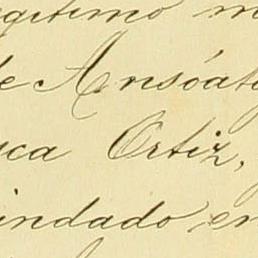 gítimo m
de Ansóat
sca Ortiz,
indado en